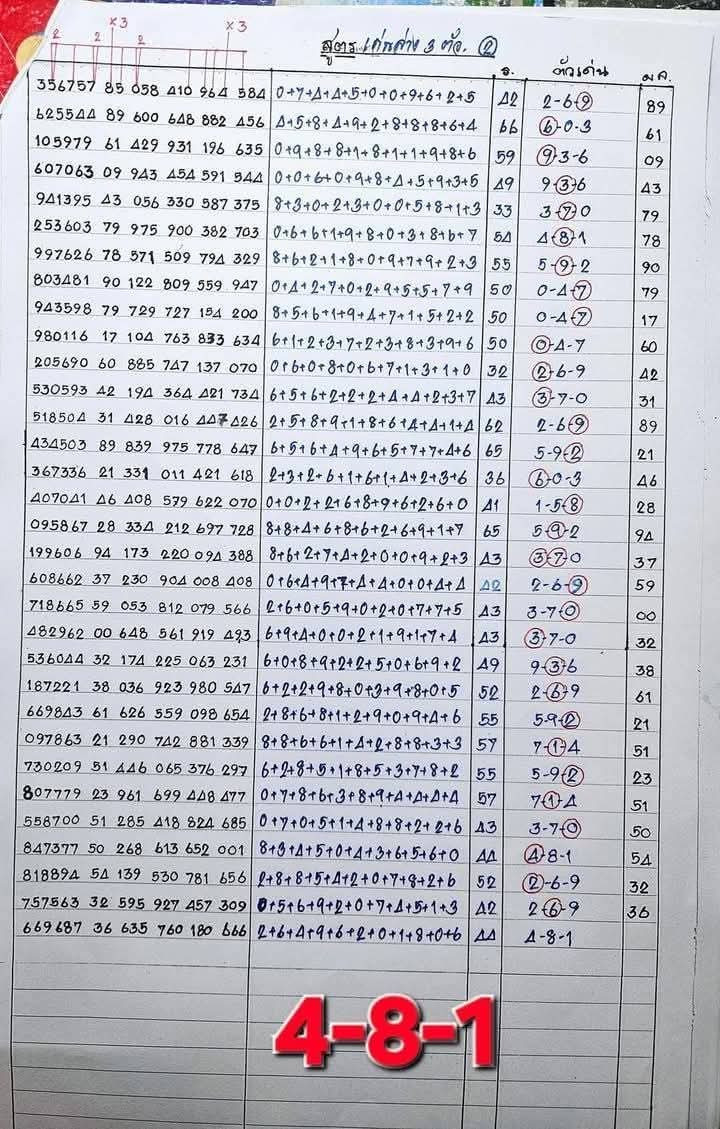 ×3 ×3
2 2 2
สูตร เด่นล่าง 3 ตัว. ②
ธ. ตัวเด่น ผล.
356757 85 058 410 964 584 0+7+4+4+5+0+0+9+6+2+5 42 2-6-9 89
625544 89 600 648 882 456 4+5+8+4+9+2+8+8+8+6+4 66 6-0-3 61
105979 61 429 931 196 635 0+9+8+8+1+8+1+1+9+8+6 59 9-3-6 09
607063 09 943 454 591 544 0+0+6+0+9+8+4+5+9+3+5 49 9-3-6 43
941395 43 056 330 587 375 8+3+0+2+3+0+0+5+8+1+3 33 3-7-0 79
253603 79 975 900 382 703 0+6+6+1+9+8+0+3+8+6+7 54 4-8-1 78
997626 78 571 509 794 329 8+6+2+1+8+0+9+7+9+2+3 55 5-9-2 90
803481 90 122 809 559 947 0+4+2+7+0+2+9+5+5+7+9 50 0-4-7 79
943598 79 729 727 154 200 8+5+6+1+9+4+7+1+5+2+2 50 0-4-7 17
980116 17 104 763 833 634 6+1+2+3+7+2+3+8+3+9+6 50 0-4-7 60
205690 60 885 747 137 070 0+6+0+8+0+6+7+1+3+1+0 32 2-6-9 42
530593 42 194 364 421 734 6+5+6+2+2+2+4+4+2+3+7 43 3-7-0 31
518504 31 428 016 447 426 2+5+8+9+1+8+6+4+4+1+4 62 2-6-9 89
434503 89 839 975 778 647 6+5+6+4+9+6+5+7+7+4+6 65 5-9-2 21
367336 21 331 011 421 618 2+3+2+6+1+6+1+4+2+3+6 36 6-0-3 46
407041 46 408 579 622 070 0+0+2+2+6+8+9+6+2+6+0 41 1-5-8 28
095867 28 334 212 697 728 8+8+4+6+8+6+2+6+9+1+7 65 5-9-2 94
199606 94 173 220 094 388 8+6+2+7+4+2+0+0+9+2+3 43 3-7-0 37
608662 37 230 904 008 408 0+6+4+9+7+4+4+0+0+4+4 42 2-6-9 59
718665 59 053 812 079 566 2+6+0+5+9+0+2+0+7+7+5 43 3-7-0 00
482962 00 648 561 919 493 6+9+4+0+0+2+1+9+1+7+4 43 3-7-0 32
536044 32 174 225 063 231 6+0+8+9+2+2+5+0+6+9+2 49 9-3-6 38
187221 38 036 923 980 547 6+2+2+9+8+0+3+9+8+0+5 52 2-6-9 61
669843 61 626 559 098 654 2+8+6+8+1+2+9+0+9+4+6 55 5-9-2 21
097863 21 290 742 881 339 8+8+6+6+1+4+2+8+8+3+3 57 7-1-4 51
730209 51 446 065 376 297 6+2+8+5+1+8+5+3+7+8+2 55 5-9-2 23
807779 23 961 699 448 477 0+7+8+6+3+8+9+4+4+4+4 57 7-1-4 51
558700 51 285 418 824 685 0+7+0+5+1+4+8+8+2+2+6 43 3-7-0 50
847377 50 268 613 652 001 8+3+4+5+0+4+3+6+5+6+0 44 4-8-1 54
818894 54 139 530 781 656 2+8+8+5+4+2+0+7+8+2+6 52 2-6-9 32
757563 32 595 927 457 309 0+5+6+9+2+0+7+4+5+1+3 42 2-6-9 36
669687 36 635 760 180 666 2+6+4+9+6+2+0+1+8+0+6 44 4-8-1
4-8-1